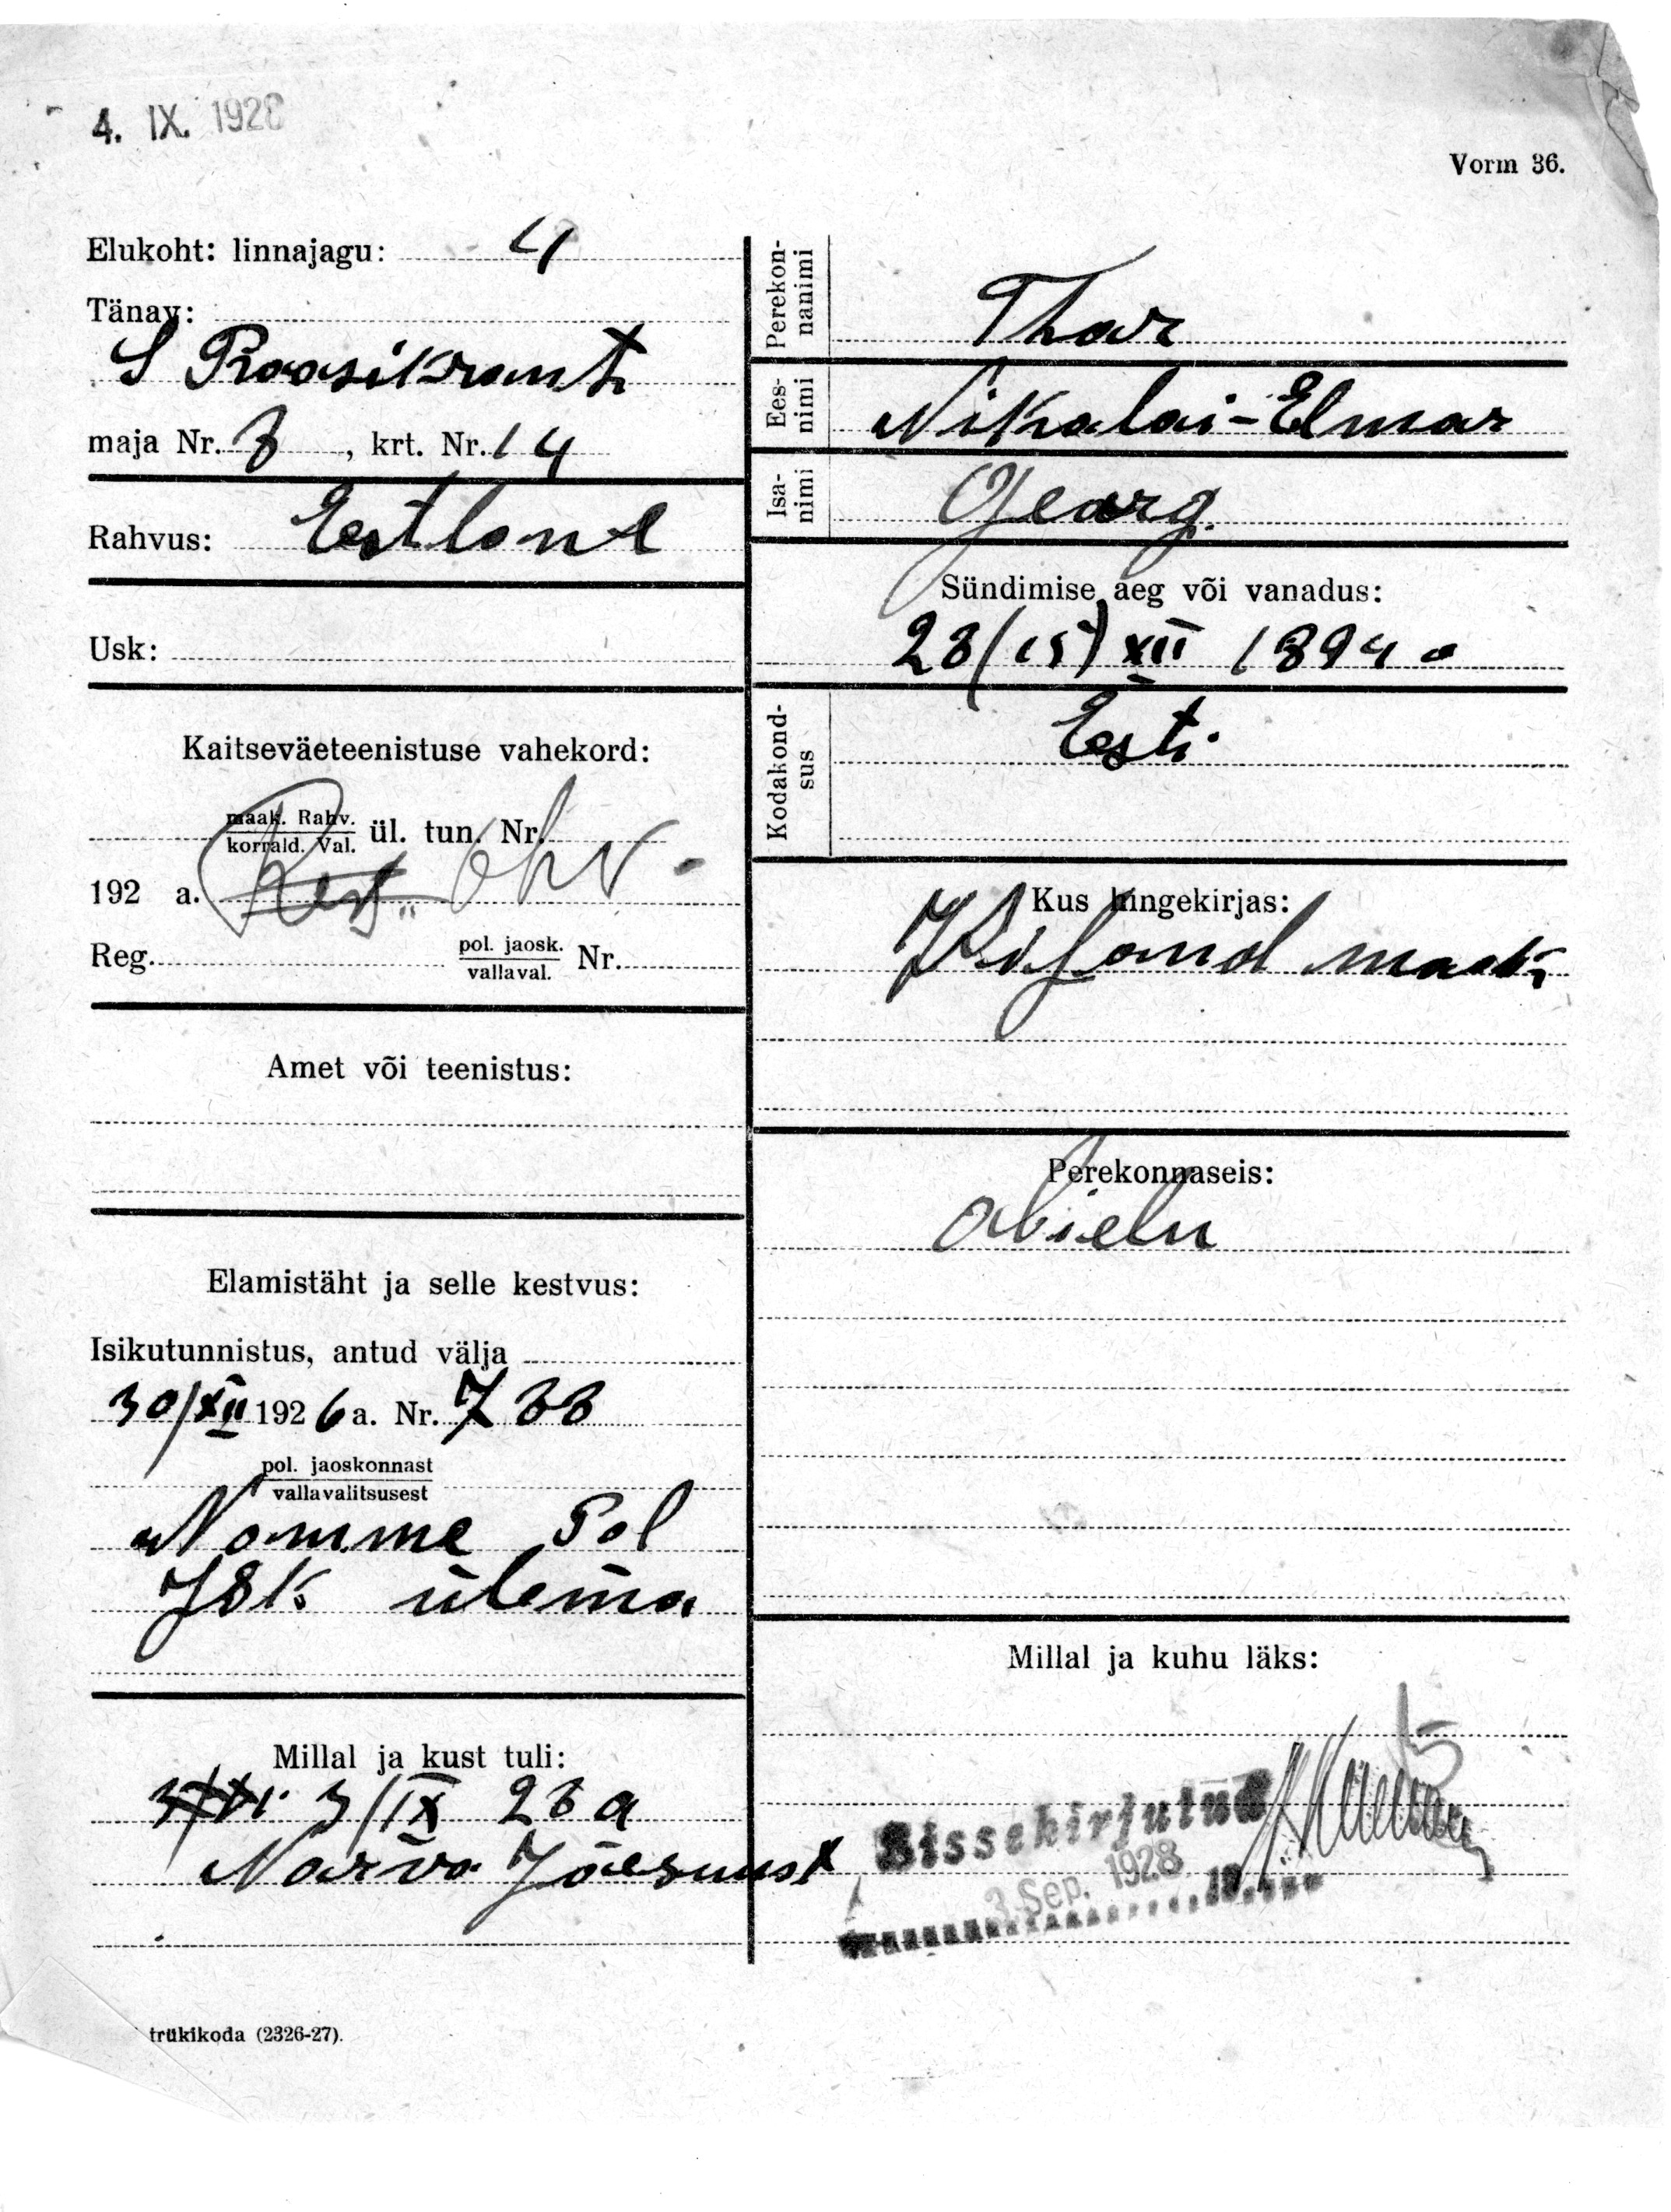 4. IX. 1928
Vorm 36.
Elukoht: linnajagu: 4
Tänav:
S Roosikrant
maja Nr. 8, krt. Nr. 14
Rahvus: Eestlane
Usk:
Kaitseväeteenistuse vahekord:
maak. Rahv.
korrald. Val. ül. tun. Nr.
192 a. ohv.
Reg. pol. jaosk.
vallaval. Nr.
Amet või teenistus:
Elamistäht ja selle kestvus:
Isikutunnistus, antud välja
30/XII 1926 a. Nr. 788
pol. jaoskonnast
vallavalitsusest
Nomme Pol
Jsk ülema
Millal ja kust tuli:
3/IX 28 a
Narva Jõesuust
trükikoda (2326-27).
Perekon-
nanimi
Thar
Ees-
nimi
Nikolai-Elmar
Isa-
nimi
Georg.
Sündimise aeg või vanadus:
28(15) XII 1894 a
Kodakond-
sus
Eesti
Kus hingekirjas:
Perekonnaseis:
abielu
Millal ja kuhu läks:
Sissekirjutud
3. Sep. 1928
19